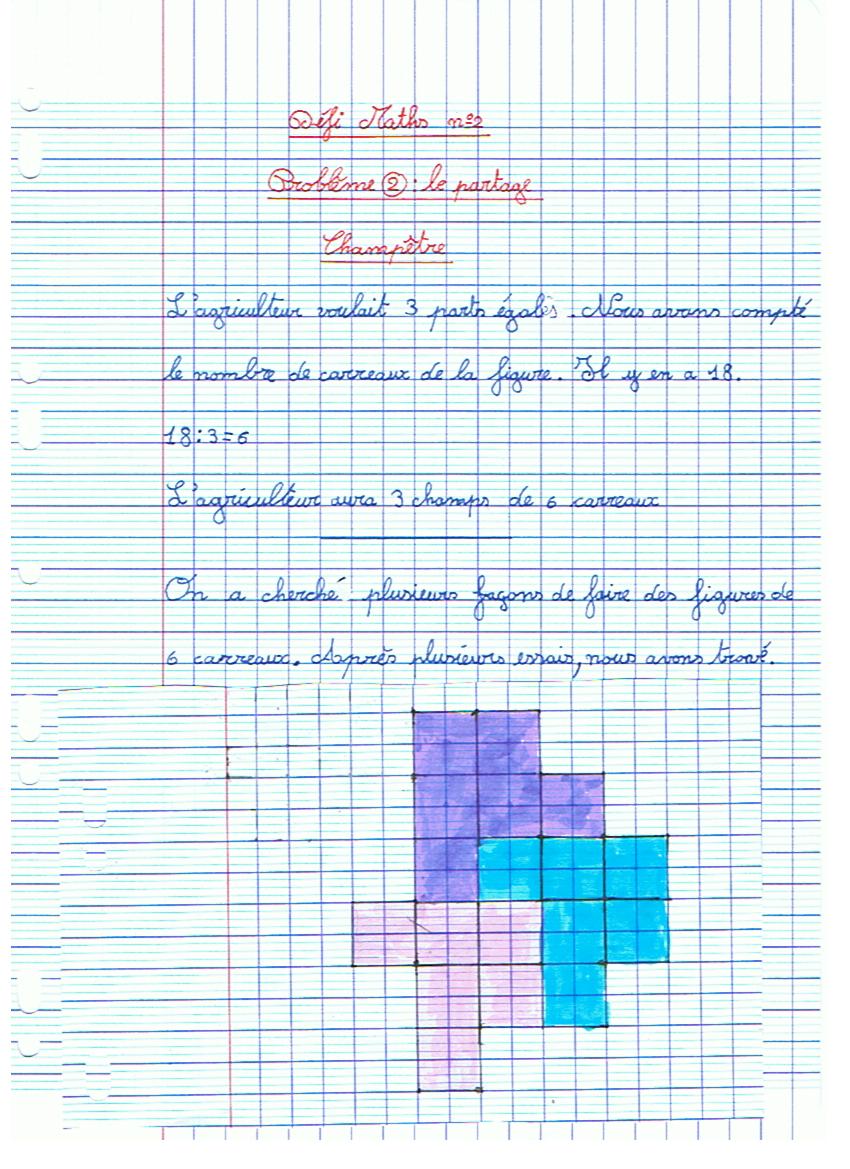 Défi Maths n°2
Problème ② : le partage
Champêtre
L'agriculteur voulait 3 parts égales. Nous avons compté
le nombre de carreaux de la figure. Il y en a 18.
18:3=6
L'agriculteur aura 3 champs de 6 carreaux
On a cherché plusieurs façons de faire des figures de
6 carreaux. Après plusieurs essais, nous avons trouvé.